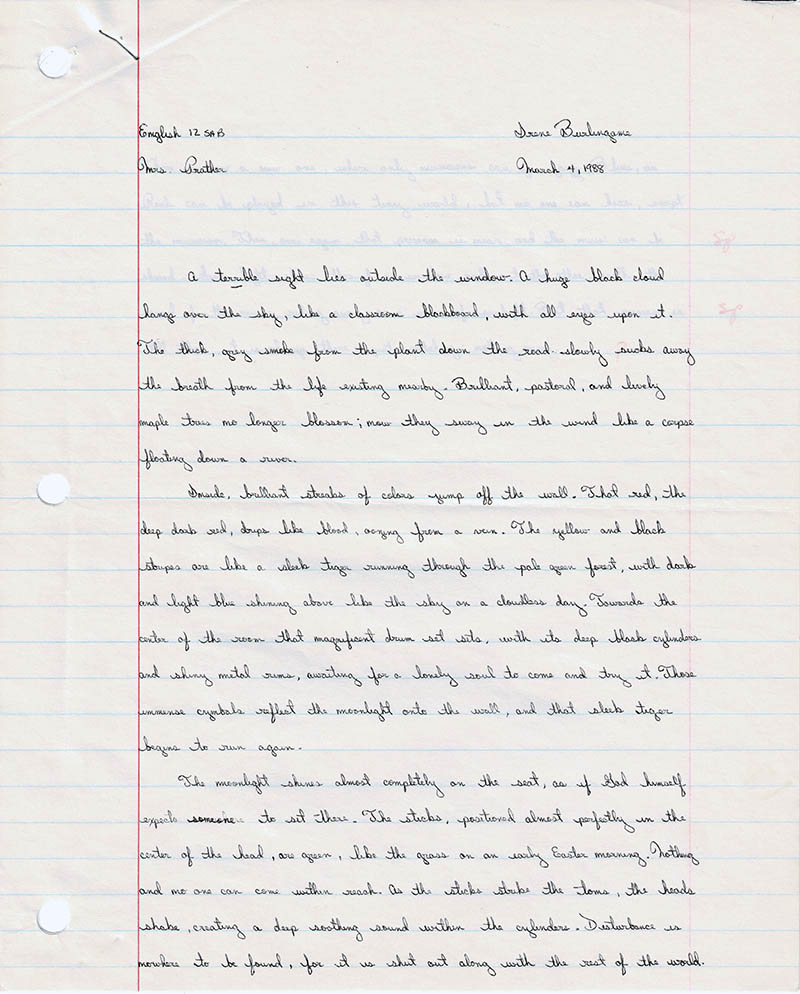 English 12 SAB
Irene Burlingame
Mrs. Prather
March 4, 1988
A terrible sight lies outside the window. A huge black cloud
hangs over the sky, like a classroom blackboard, with all eyes upon it.
The thick, grey smoke from the plant down the road slowly sucks away
the breath from the life existing nearby. Brilliant, pastoral, and lively
maple trees no longer blossom; now they sway in the wind like a corpse
floating down a river.
Inside, brilliant streaks of colors jump off the wall. That red, the
deep dark red, drips like blood, oozing from a vein. The yellow and black
stripes are like a sleek tiger running through the pale green forest, with dark
and light blue shining above like the sky on a cloudless day. Towards the
center of the room that magnificent drum set sits, with its deep black cylinders
and shiny metal rims, awaiting for a lonely soul to come and try it. Those
immense cymbals reflect the moonlight onto the wall, and that sleek tiger
begins to run again.
The moonlight shines almost completely on the seat, as if God himself
expects someone to sit there. The sticks, positioned almost perfectly in the
center of the head, are green, like the grass on an early Easter morning. Nothing
and no one can come within reach. As the sticks strike the toms, the heads
shake, creating a deep soothing sound within the cylinders. Disturbance is
nowhere to be found, for it is shut out along with the rest of the world.
Sp
Sp